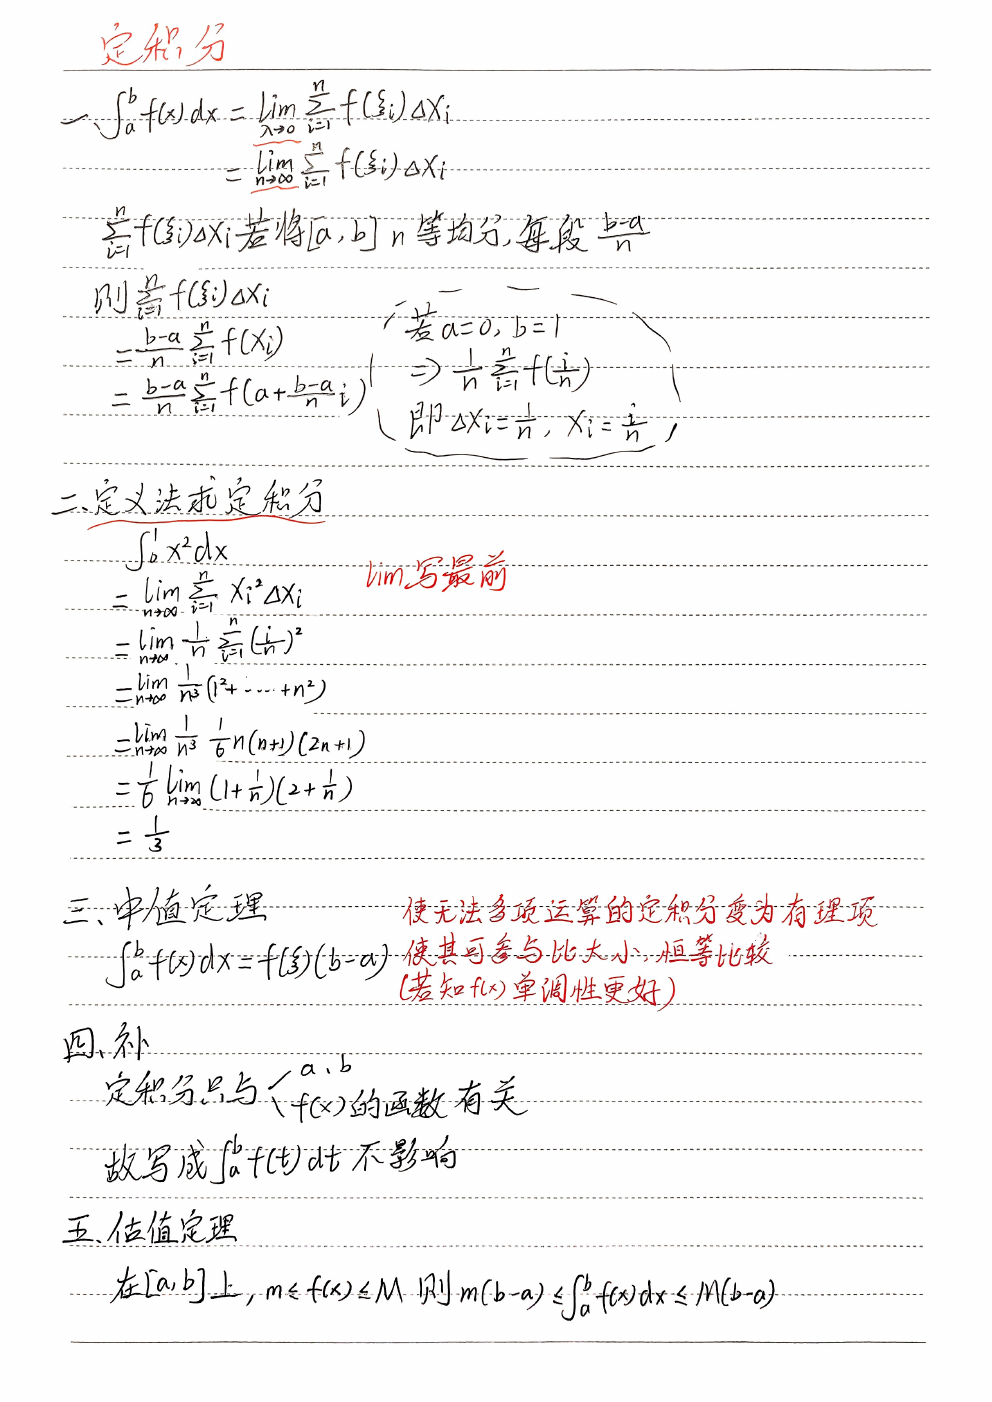 定积分
一、∫_a^b f(x)dx = lim_{λ→0} Σ_{i=1}^n f(ξi)ΔXi
= lim_{n→∞} Σ_{i=1}^n f(ξi)ΔXi
Σ_{i=1}^n f(ξi)ΔXi 若将[a,b] n等均分,每段 (b-a)/n
则 Σ_{i=1}^n f(ξi)ΔXi
= (b-a)/n Σ_{i=1}^n f(Xi)
= (b-a)/n Σ_{i=1}^n f(a+(b-a)/n i)
若a=0, b=1
⇒ 1/n Σ_{i=1}^n f(i/n)
即ΔXi=1/n, Xi=i/n
二、定义法求定积分
∫_b^1 x²dx
lim写最前
= lim_{n→∞} Σ_{i=1}^n Xi²ΔXi
= lim_{n→∞} 1/n Σ_{i=1}^n (i/n)²
= lim_{n→∞} 1/n³ (1²+……+n²)
= lim_{n→∞} 1/n³ 1/6 n(n+1)(2n+1)
= 1/6 lim_{n→∞} (1+1/n)(2+1/n)
= 1/3
三、中值定理
∫_a^b f(x)dx=f(ξ)(b-a)
使无法多项运算的定积分变为有理项
使其可参与比大小,恒等比较
(若知f(x)单调性更好)
四、补
定积分只与{a、b
f(x)的函数 有关
故写成∫_a^b f(t)dt不影响
五、估值定理
在[a,b]上, m≤f(x)≤M 则 m(b-a)≤∫_a^b f(x)dx≤M(b-a)